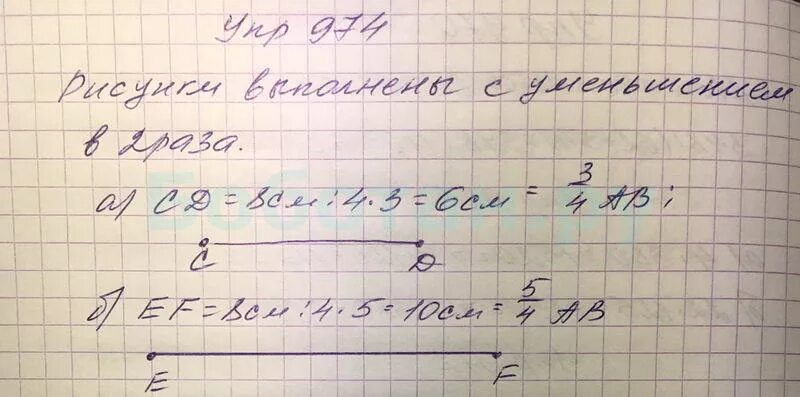 Упр 974
Рисунки выполнены с уменьшением
в 2 раза.
а) CD = 8см : 4 · 3 = 6см = 3/4 AB;
C D
б) EF = 8см : 4 · 5 = 10см = 5/4 AB
E F